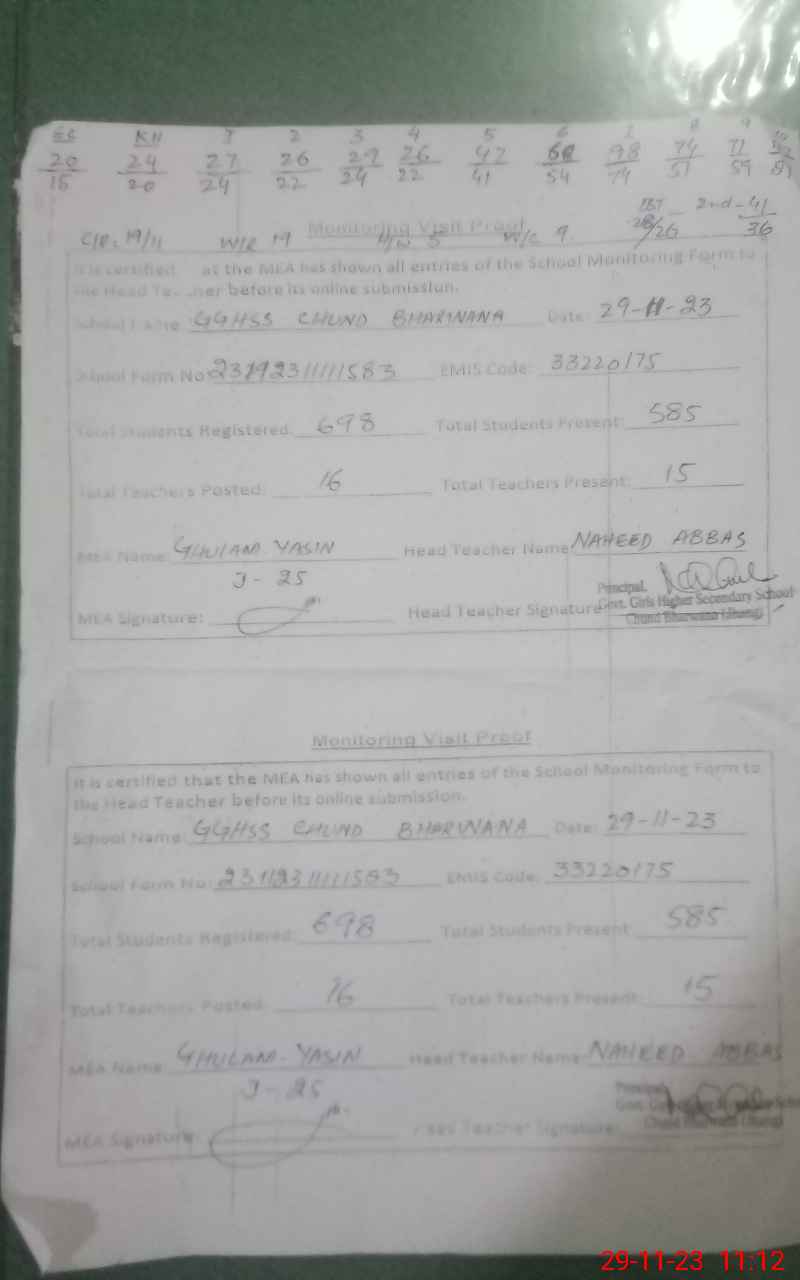 ES KH 1 2 3 4 5 6 7 8 9
20 24 27 26 29 26 47 98 74 77
15 20 24 22 24 22 41 54 74 57 59
C/R: 19/11 W/R 19 5 9. 1ST 2nd - 41
26 36
Monitoring Visit Proof
It is certified as the MEA has shown all entries of the School Monitoring Form to
the Head Te her before its online submission.
School Name GGHSS CHUND BHARWANA Date: 29-11-23
School Form No: EMIS Code: 33220175
Total Students Registered: 698 Total Students Present: 585
Total Teachers Posted: 16 Total Teachers Present: 15
MEA Name GHULAM YASIN Head Teacher Name: NAHEED ABBAS
J-25
Principal,
MEA Signature: Head Teacher Signature Govt. Girls Higher Secondary School
Chund Bharwana (Jhang)
Monitoring Visit Proof
It is certified that the MEA has shown all entries of the School Monitoring Form to
the Head Teacher before its online submission.
School Name: GGHSS CHUND BHARWANA Date: 29-11-23
School Form No: EMIS Code: 33220175
Total Students Registered: 698 Total Students Present: 585
Total Teachers Posted: 16 Total Teachers Present: 15
MEA Name GHULAM YASIN Head Teacher Name NAHEED ABBAS
J-25
Principal
MEA Signature: Head Teacher Signature: Govt.
Chund Bharwana (Jhang)
29-11-23 11:12